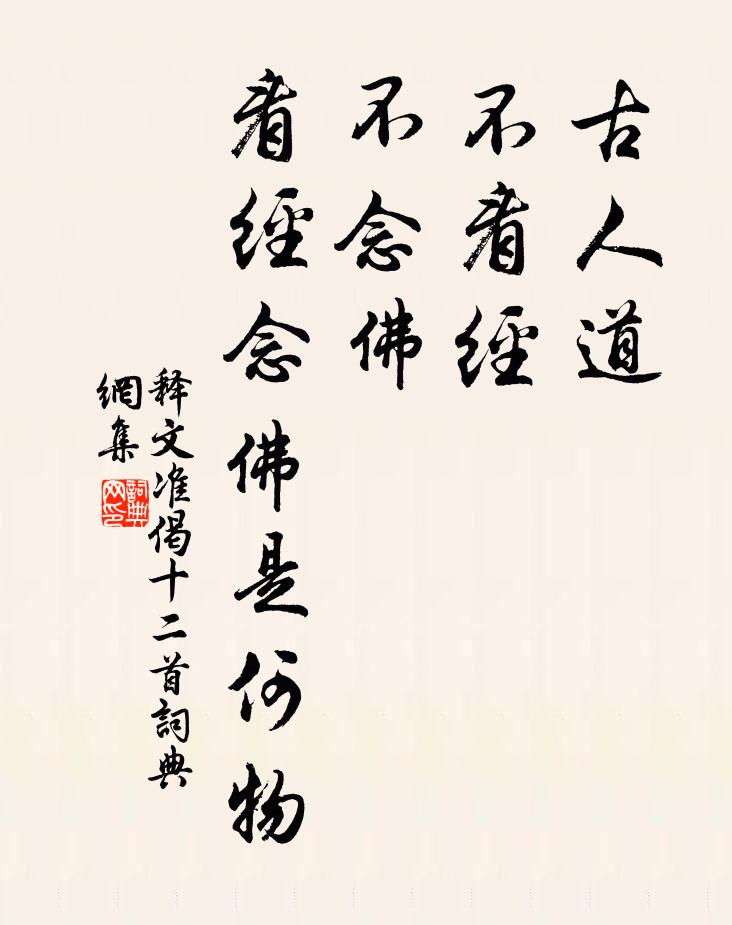 古人道
不看經
不念佛
看經念佛是何物
释文准偈十二首詞典
網集
詞典
网印